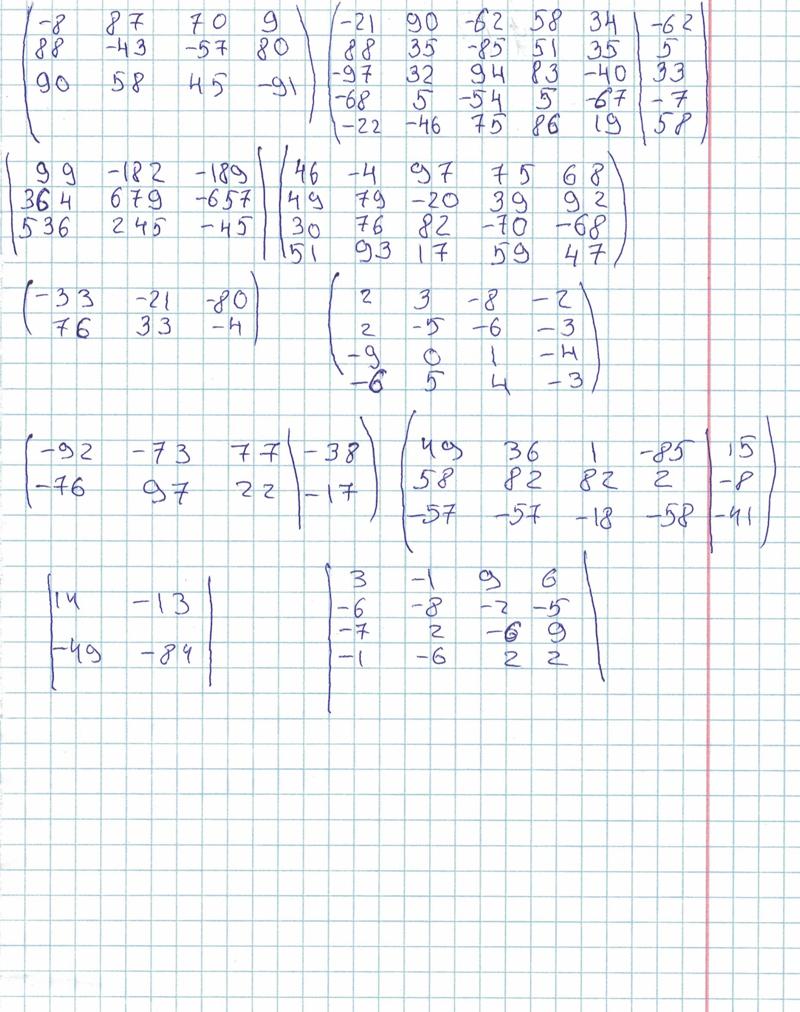 -8 87 70 9
88 -43 -57 80
90 58 45 -91
-21 90 -62 58 34 | -62
88 35 -85 51 35 | 5
-97 32 94 83 -40 | 33
-68 5 -54 5 -67 | -7
-22 -46 75 86 19 | 58
99 -182 -189
364 679 -657
536 245 -45
46 -4 97 75 68
49 79 -20 39 92
30 76 82 -70 -68
51 93 17 59 47
-33 -21 -80
76 33 -4
2 3 -8 -2
2 -5 -6 -3
-9 0 1 -4
-6 5 4 -3
-92 -73 77 | -38
-76 97 22 | -17
49 36 1 -85 | 15
58 82 82 2 | -8
-57 -57 -18 -58 | -41
14 -13
-49 -84
3 -1 9 6
-6 -8 -2 -5
-7 2 -6 9
-1 -6 2 2